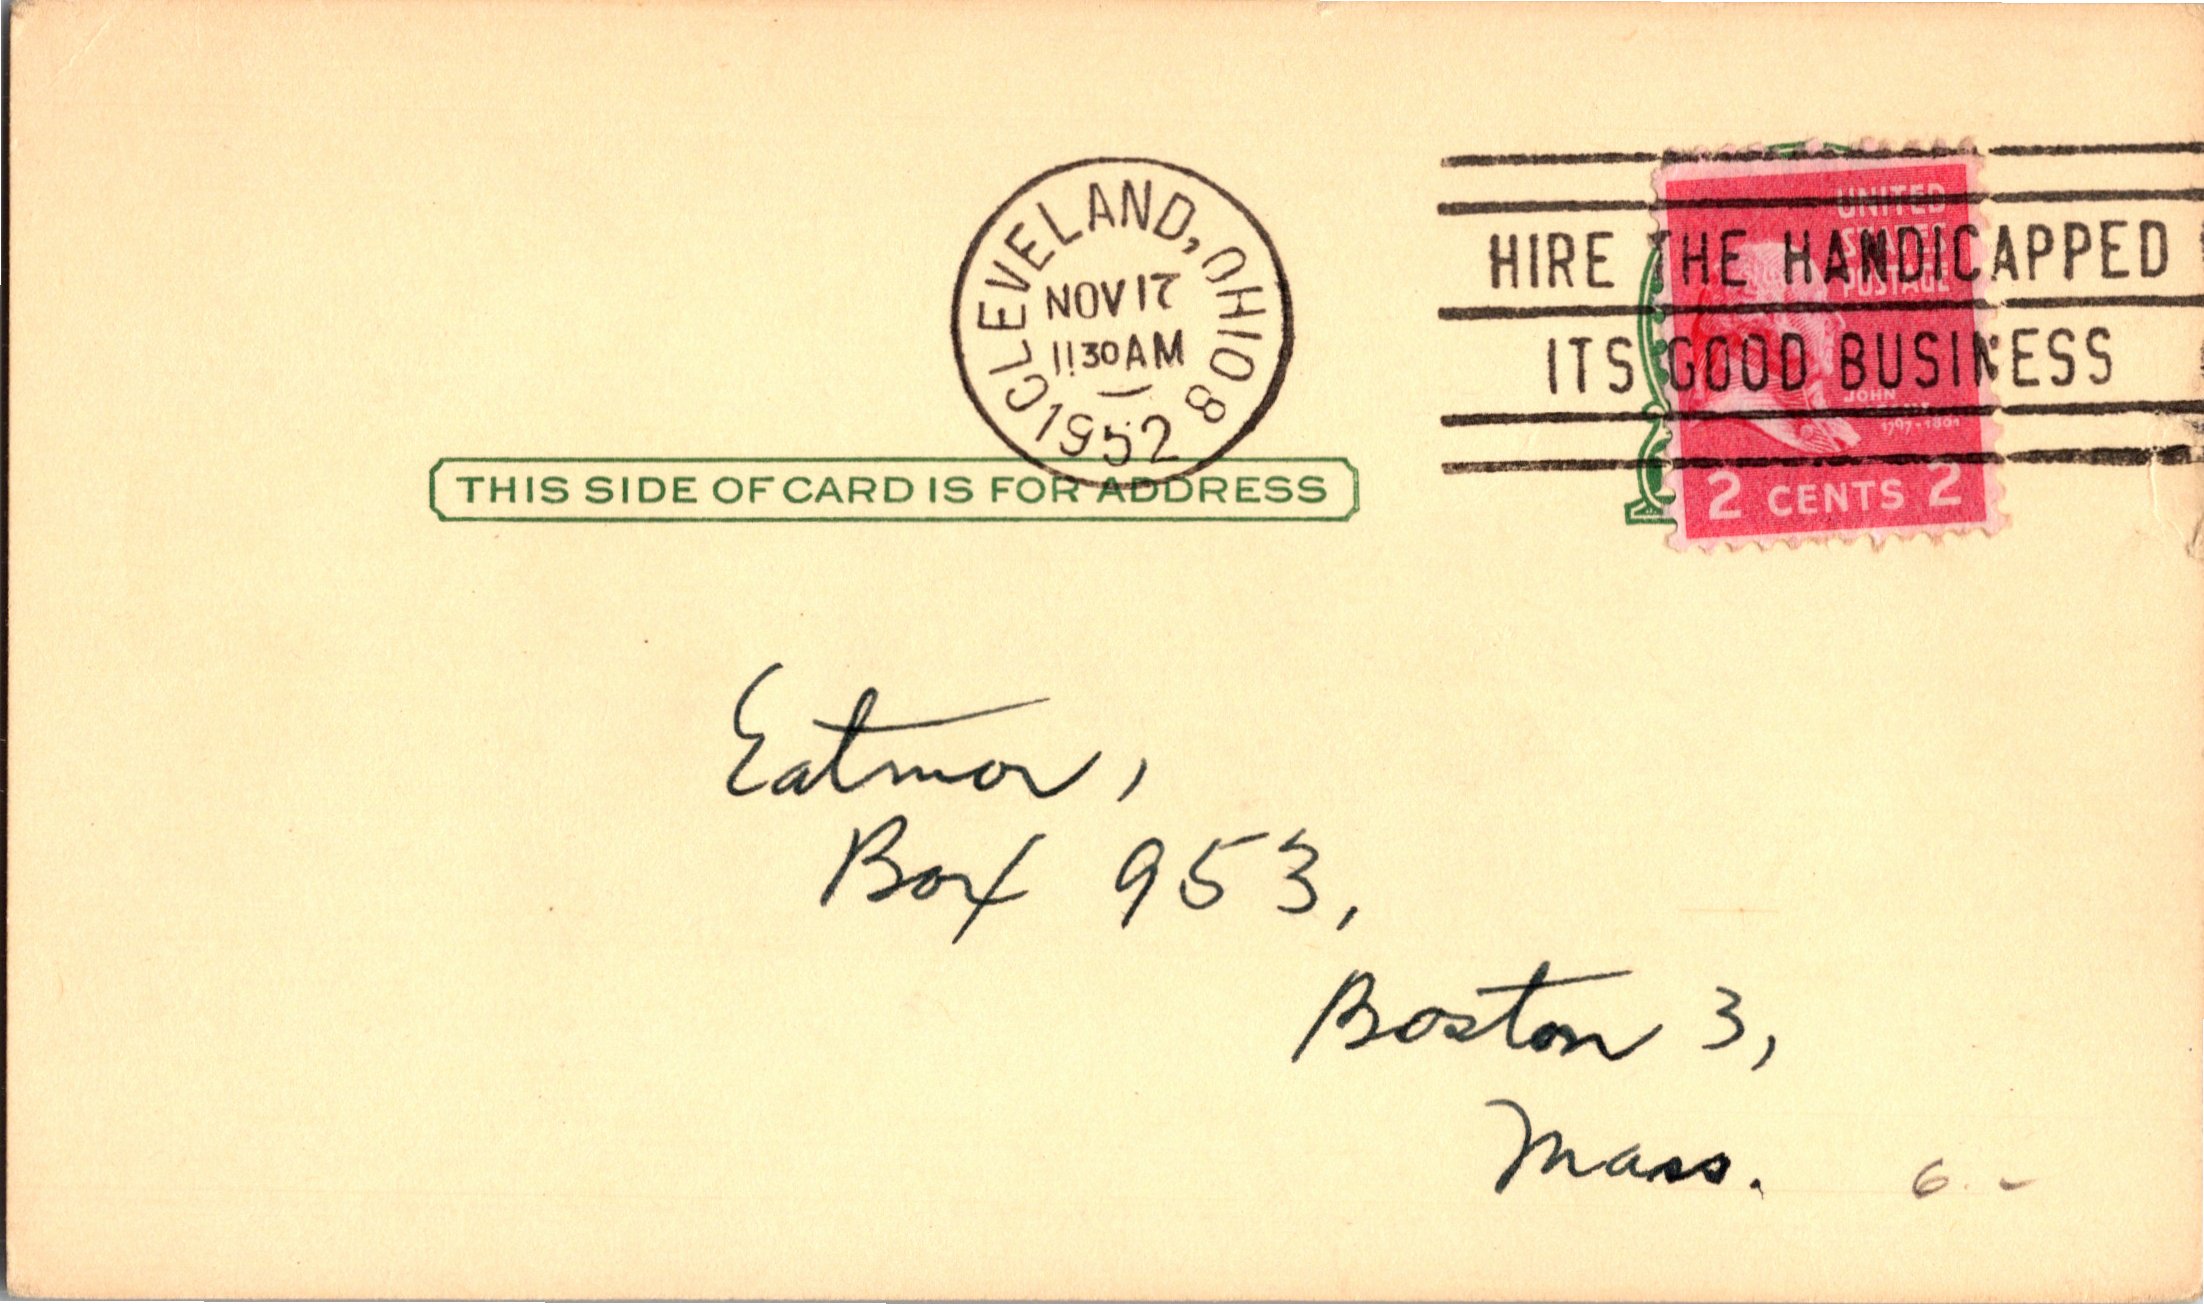 CLEVELAND, OHIO 8
NOV 17
1130 AM
1952
HIRE THE HANDICAPPED
ITS GOOD BUSINESS
UNITED
STATES
POSTAGE
JOHN
1797-1801
2 CENTS 2
THIS SIDE OF CARD IS FOR ADDRESS
Eatmor,
Box 953,
Boston 3,
Mass.
6.-